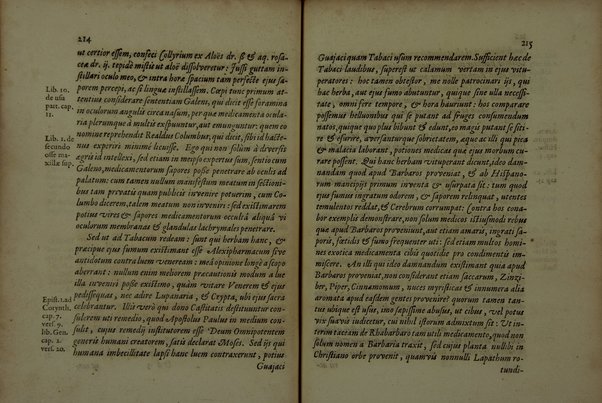 214
ut certior essem, confeci Collyrium ex Aloës dr. ß & aq. rosa-
cea dr. ij. tepidè mistis ut aloë dissolveretur: Jussi guttam in-
stillari oculo meo, & intra horæ spacium tam perfectè ejus sa-
porem percepi, ac si lingua instillassem. Cœpi tunc primum at-
tentiùs considerare sententiam Galeni, qui dicit esse foramina
in oculorum angulis circa nasum, per quæ medicamenta ocula-
ria plerumque à multis exspuuntur, aut emunguntur: quem eo
nomine reprehendit Realdus Columbus, qui dicit, sibi id hacte-
nus experiri minimè licuisse. Ego qui non solùm à diversis
agris id intellexi, sed etiam in meipso expertus sum, sentio cum
Galeno, medicamentorum sapores posse penetrare ab oculis ad
palatum: cum tamen nullum manifestum meatum in sectioni-
bus tam privatis quam publicis invenire potuerim, cum Co-
lumbo dicerem, talem meatum non inveniri: sed existimarem
potius vires & sapores medicamentorum occultâ aliquâ vi
oculorum membranas & glandulas lachrymales penetrare.
Sed ut ad Tabacum redeam: sunt qui herbam hanc, &
præcipuè ejus fumum existimant esse Alexipharmacum sive
antidotum contra luem veneream: mea opinione longè à scopo
aberrant: nullum enim meliorem præcautionis modum à lue
illa inveniri posse existimo, quàm vitare Venerem & ejus
pedissequas, nec adire Lupanaria, & Crypta, ubi ejus sacra
celebrantur. Illi verò qui dono Castitatis destituuntur con-
sulerem uti remedio, quod Apostolus Paulus in medium con-
sulit, cujus remedij institutorem esse Deum Omnipotentem
generis humani creatorem, satis declarat Moses. Sed ijs qui
humana imbecillitate lapsi hanc luem contraxerunt, potius
Guajaci
Lib. 10.
de usu
part. cap.
11.
Lib. 1. de
secundo
osse ma-
xillæ sup.
Epist. 1. ad
Corynth.
cap. 7.
vers. 9.
lib. Gen.
cap. 2.
vers. 20.
215
Guajaci quam Tabaci usum recommendarem. Sufficient hæc de
Tabaci laudibus, superest ut calamum vertam in ejus vitu-
peratores: hoc tamen obtestor, me nolle patrocinari ijs, qui
hac herba, aut ejus fumo abutuntur, quique sine ulla necessi-
tate, omni fere tempore, & hora hauriunt: hos comparare
possemus helluonibus qui se putant ad fruges consumendum
natos, quique quo plus bibunt & edunt, eo magis putant se siti-
re & esurire, aversanturque sobrietatem, aut ægris illis qui pica
& malacia laborant, potiusque medicas quæ ejus morbum cu-
rare possent. Qui hanc herbam vituperant dicunt, ideo dam-
nandam quod apud Barbaros proveniat, & ab Hispano-
rum mancipijs primum inventa & usurpata sit: tum quod
ejus fumus ingratum odorem, & saporem relinquat, utentes
temulentos reddat, & Cerebrum corrumpat: Contra hos cona-
bor exemplis demonstrare, non solum medicos istiusmodi rebus
quæ apud Barbaros proveniunt, aut etiam amaris, ingrati sa-
poris, fœtidis & fumo frequenter uti: sed etiam multos homi-
nes exotica medicamenta cibis quotidie pro condimentis im-
miscere. At illi qui ideo damnandum existimant quia apud
Barbaros proveniat, non considerant etiam saccarum, Zinzi-
ber, Piper, Cinnamomum, nuces myristicas & innumera alia
aromata apud easdem gentes provenire? quorum tamen tan-
tus ubique est usus, imo sæpissimè abusus, ut cibus, vel potus
vix suavis judicetur, cui nihil istorum admixtum sit: Ut in-
terim taceam de Rhabarbaro tam utili medicamento, quod non
solum nomen a Barbaria traxit, sed cujus planta nullibi in
Christiano orbe provenit, quamvis nonnulli Lapathum ro-
tundi-